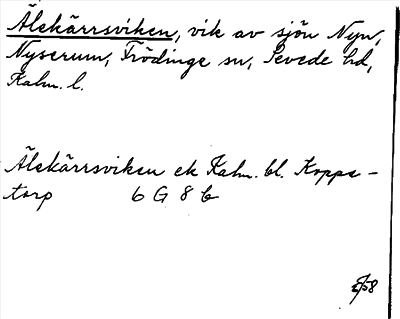 Älskärrsviken, vik av sjön Nyn,
Nyserum, Frödinge sn, Sevede hd,
Kalm. l.
Älskärrsviken ek Kalm. bl. Kopps-
torp 6 G 8 b